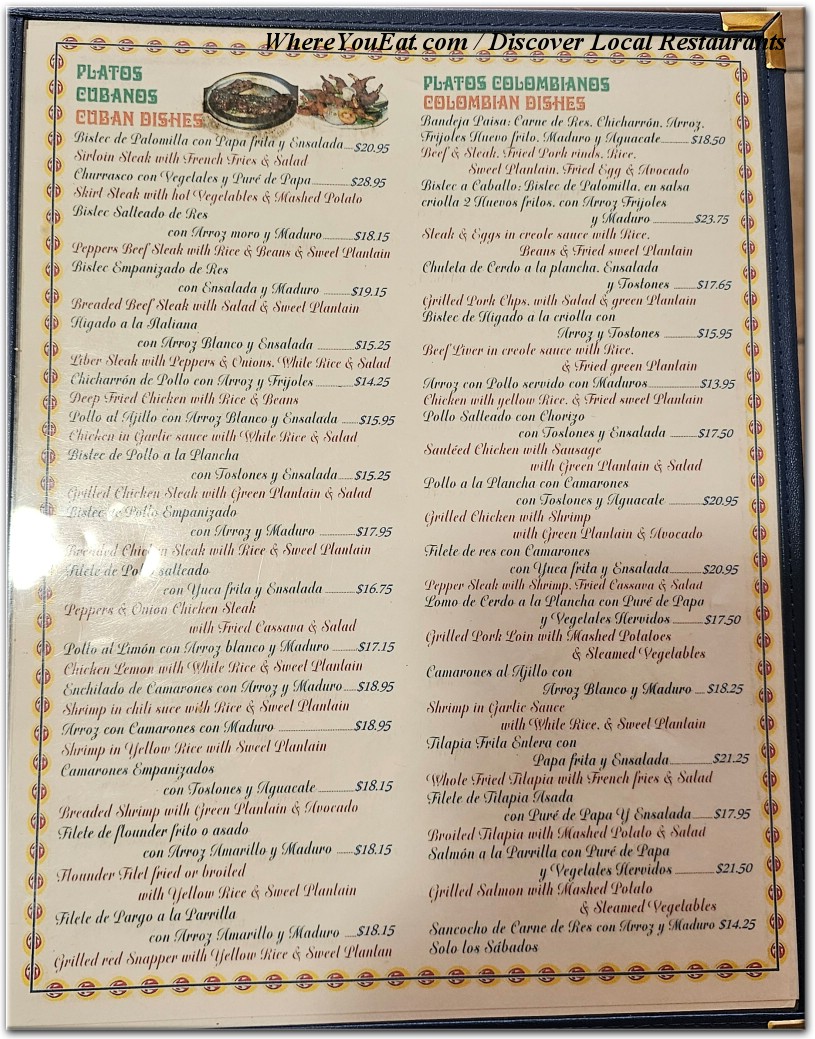 WhereYouEat.com / Discover Local Restaurants
PLATOS
CUBANOS
CUBAN DISHES
Bistec de Palomilla con Papa frita y Ensalada $20.95
Sirloin Steak with French Fries & Salad
Churrasco con Vegetales y Puré de Papa $28.95
Skirt Steak with hot Vegetables & Mashed Potato
Bistec Salteado de Res
con Arroz moro y Maduro $18.15
Peppers Beef Steak with Rice & Beans & Sweet Plantain
Bistec Empanizado de Res
con Ensalada y Maduro $19.15
Breaded Beef Steak with Salad & Sweet Plantain
Higado a la Italiana
con Arroz Blanco y Ensalada $15.25
Liber Steak with Peppers & Onions, White Rice & Salad
Chicharrón de Pollo con Arroz y Frijoles $14.25
Deep Fried Chicken with Rice & Beans
Pollo al Ajillo con Arroz Blanco y Ensalada $15.95
Chicken in Garlic sauce with White Rice & Salad
Bistec de Pollo a la Plancha
con Tostones y Ensalada $15.25
Grilled Chicken Steak with Green Plantain & Salad
Bistec de Pollo Empanizado
con Arroz y Maduro $17.95
Breaded Chicken Steak with Rice & Sweet Plantain
Filete de Pollo salteado
con Yuca frita y Ensalada $16.75
Peppers & Onion Chicken Steak
with Fried Cassava & Salad
Pollo al Limón con Arroz blanco y Maduro $17.15
Chicken Lemon with White Rice & Sweet Plantain
Enchilado de Camarones con Arroz y Maduro $18.95
Shrimp in chili suce with Rice & Sweet Plantain
Arroz con Camarones con Maduro $18.95
Shrimp in Yellow Rice with Sweet Plantain
Camarones Empanizados
con Tostones y Aguacate $18.15
Breaded Shrimp with Green Plantain & Avocado
Filete de flounder frito o asado
con Arroz Amarillo y Maduro $18.15
Flounder Filet fried or broiled
with Yellow Rice & Sweet Plantain
Filete de Pargo a la Parrilla
con Arroz Amarillo y Maduro $18.15
Grilled red Snapper with Yellow Rice & Sweet Plantan
PLATOS COLOMBIANOS
COLOMBIAN DISHES
Bandeja Paisa: Carne de Res, Chicharrón, Arroz,
Frijoles Huevo frito, Maduro y Aguacate $18.50
Beef & Steak, Fried Pork rinds, Rice,
Sweet Plantain, Fried Egg & Avocado
Bistec a Caballo: Bistec de Palomilla, en salsa
criolla 2 Huevos fritos, con Arroz Frijoles
y Maduro $23.75
Steak & Eggs in creole sauce with Rice,
Beans & Fried sweet Plantain
Chuleta de Cerdo a la plancha, Ensalada
y Tostones $17.65
Grilled Pork Chps, with Salad & green Plantain
Bistec de Higado a la criolla con
Arroz y Tostones $15.95
Beef Liver in creole sauce with Rice,
& Fried green Plantain
Arroz con Pollo servido con Maduros $13.95
Chicken with yellow Rice, & Fried sweet Plantain
Pollo Salteado con Chorizo
con Tostones y Ensalada $17.50
Sautéed Chicken with Sausage
with Green Plantain & Salad
Pollo a la Plancha con Camarones
con Tostones y Aguacate $20.95
Grilled Chicken with Shrimp
with Green Plantain & Avocado
Filete de res con Camarones
con Yuca frita y Ensalada $20.95
Pepper Steak with Shrimp, Fried Cassava & Salad
Lomo de Cerdo a la Plancha con Puré de Papa
y Vegetales Hervidos $17.50
Grilled Pork Loin with Mashed Potatoes
& Steamed Vegetables
Camarones al Ajillo con
Arroz Blanco y Maduro $18.25
Shrimp in Garlic Sauce
with White Rice, & Sweet Plantain
Tilapia Frita Entera con
Papa frita y Ensalada $21.25
Whole Fried Tilapia with French fries & Salad
Filete de Tilapia Asada
con Puré de Papa Y Ensalada $17.95
Broiled Tilapia with Mashed Potato & Salad
Salmón a la Parrilla con Puré de Papa
y Vegetales Hervidos $21.50
Grilled Salmon with Mashed Potato
& Steamed Vegetables
Sancocho de Carne de Res con Arroz y Maduro $14.25
Solo los Sábados